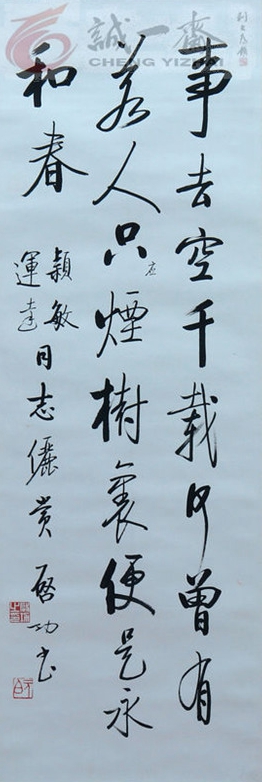 誠一齋
CHENG YIZHAI
事去空千載何曾有
若人只应煙樹裏便是永
和春
穎敏
運達
同志儷賞 啟功書